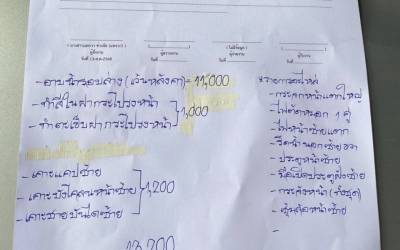 วันที่
วันที่
วันที่
วันที่
- อาบน้ำรอบล่าง (เว้นหลังคา) = 11,000
- ทำสีในฝากระโปรงหน้า
- ทำตะเข็บฝากระโปรงหน้า
1,000
- เคาะแคปซ้าย
- เคาะบังโคลนหน้าซ้าย
- เคาะชายบันไดซ้าย
1,200
13,200
* รายการอะไหล่
- กระจกหน้าแตกใหญ่
- ไฟตัดหมอก 1 คู่
- ไฟหน้าซ้ายแตก
- รีดน้ำนอกซ้าย ขวา
- ประตูหน้าซ้าย
- มือเปิดประตูฝั่งซ้าย
- กระจังหน้า (ทั้งชุด)
- ซุ้มล้อหน้าซ้าย
-